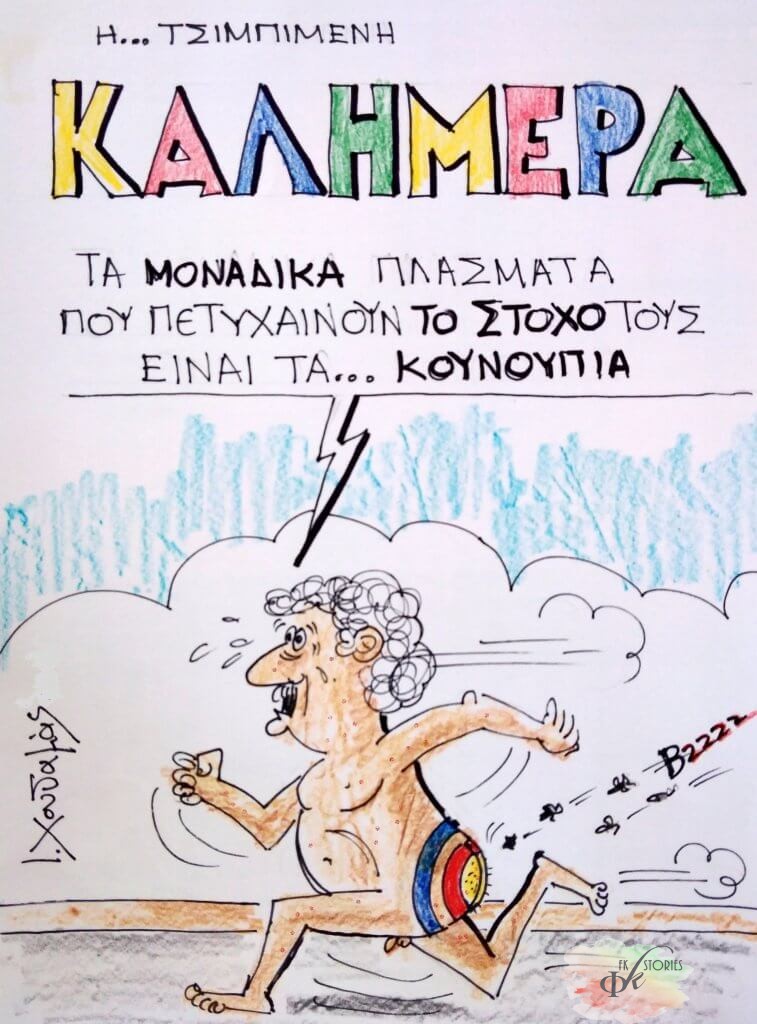 Η... ΤΣΙΜΠΙΜΕΝΗ
ΚΑΛΗΜΕΡΑ
ΤΑ ΜΟΝΑΔΙΚΑ ΠΛΑΣΜΑΤΑ
ΠΟΥ ΠΕΤΥΧΑΙΝΟΥΝ ΤΟ ΣΤΟΧΟ ΤΟΥΣ
ΕΙΝΑΙ ΤΑ... ΚΟΥΝΟΥΠΙΑ
Βzzzz
FK STORIES